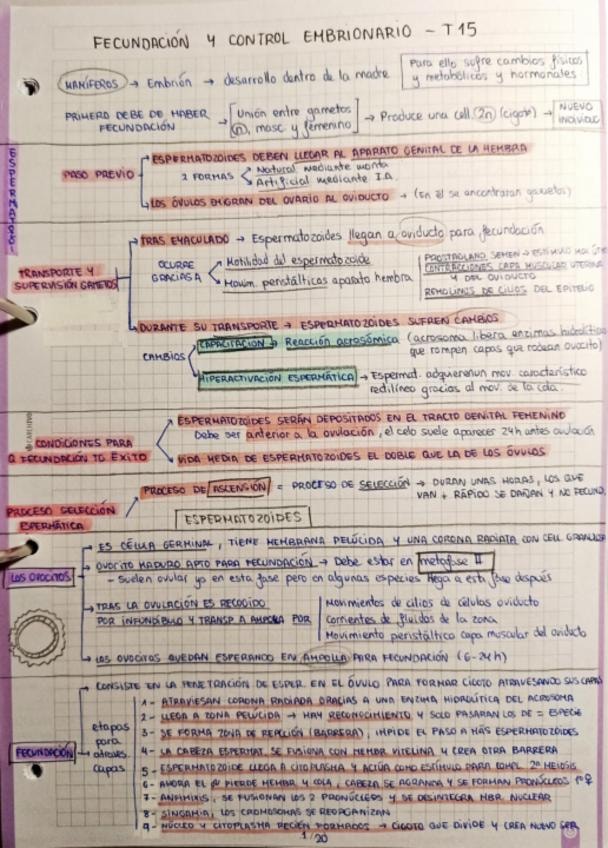 FECUNDACIÓN Y CONTROL EMBRIONARIO - T15
MAMÍFEROS → Embrión → desarrollo dentro de la madre
Para ello sufre cambios físicos
y metabólicos y hormonales
PRIMERO DEBE DE HABER
FECUNDACIÓN → [Unión entre gametos
(n), masc. y femenino] → Produce una cell. (2n) (cigoto) → NUEVO
INDIVIDUO
PASO PREVIO
ESPERMATOZOIDES DEBEN LLEGAR AL APARATO GENITAL DE LA HEMBRA
2 FORMAS < Natural mediante monta
Artificial mediante I.A.
LOS ÓVULOS EMIGRAN DEL OVARIO AL OVIDUCTO → (En él se encontraran gametos)
TRANSPORTE Y
SUPERVISIÓN GAMETOS
TRAS EYACULADO → Espermatozoides llegan a oviducto para fecundación
OCURRE
GRACIAS A
Motilidad del espermatozoide
Movim. peristálticos aparato hembra
PROSTAGLAND SEMEN → ESTIMULO
CONTRACCIONES CAPA MUSCULAR UTERINA
Y DEL OVIDUCTO
REMOLINOS DE CILIOS DEL EPITELIO
DURANTE SU TRANSPORTE → ESPERMATOZOIDES SUFREN CAMBIOS
CAMBIOS
CAPACITACIÓN → Reacción acrosómica (acrosoma libera enzimas hidrolític
que rompen capas que rodean ovocito)
HIPERACTIVACIÓN ESPERMÁTICA → Espermat. adquieren un mov. característico
redilíneo gracias al mov. de la cola.
CONDICIONES PARA
Q FECUNDACIÓN TG ÉXITO
ESPERMATOZOIDES SERÁN DEPOSITADOS EN EL TRACTO GENITAL FEMENINO
Debe ser anterior a la ovulación, el celo suele aparecer 24h antes ovulación
VIDA MEDIA DE ESPERMATOZOIDES EL DOBLE QUE LA DE LOS ÓVULOS
PROCESO SELECCIÓN
ESPERMÁTICA
PROCESO DE ASCENSIÓN = PROCESO DE SELECCIÓN → DURAN UNAS HORAS, LOS QUE
VAN + RÁPIDO SE DAÑAN Y NO FECUND.
ESPERMATOZOIDES
LOS OVOCITOS
ES CÉLULA GERMINAL, TIENE MEMBRANA PELÚCIDA Y UNA CORONA RADIATA CON CELL GRANULOS
OVOCITO MADURO APTO PARA FECUNDACIÓN → Debe estar en metafase II
- Suelen ovular ya en esta fase pero en algunas especies llega a esta fase después
TRAS LA OVULACIÓN ES RECOGIDO
POR INFUNDÍBULO Y TRANSP A AMPOLLA POR
Movimientos de cilios de células oviducto
Corrientes de fluidos de la zona
Movimiento peristáltico capa muscular del oviducto
LOS OVOCITOS QUEDAN ESPERANDO EN AMPOLLA PARA FECUNDACIÓN (6-24h)
FECUNDACIÓN
CONSISTE EN LA PENETRACIÓN DE ESPER. EN EL ÓVULO PARA FORMAR CIGOTO ATRAVESANDO SUS CAPAS
etapas
para
atraves.
capas
1- ATRAVIESAN CORONA RADIADA GRACIAS A UNA ENZIMA HIDROLÍTICA DEL ACROSOMA
2- LLEGA A ZONA PELÚCIDA → HAY RECONOCIMIENTO Y SOLO PASARAN LOS DE = ESPECIE
3- SE FORMA ZONA DE REACCIÓN (BARRERA), IMPIDE EL PASO A MÁS ESPERMATOZOIDES
4- LA CABEZA ESPERMAT. SE FUSIONA CON MEMBR VITELINA Y CREA OTRA BARRERA
5- ESPERMATOZOIDE LLEGA A CITOPLASMA Y ACTÚA COMO ESTÍMULO PARA COMPL 2ª MEIOSIS
6- AHORA EL PIERDE MEMBR Y COLA, CABEZA SE AGRANDA Y SE FORMAN PRONÚCLEOS ♂♀
7- ANFIMIXIS, SE FUSIONAN LOS 2 PRONÚCLEOS Y SE DESINTEGRA MBR. NUCLEAR
8- SINGAMIA, LOS CROMOSOMAS SE REORGANIZAN
9- NÚCLEO Y CITOPLASMA RECIÉN FORMADOS → CIGOTO QUE DIVIDE Y CREA NUEVO SER
1/20